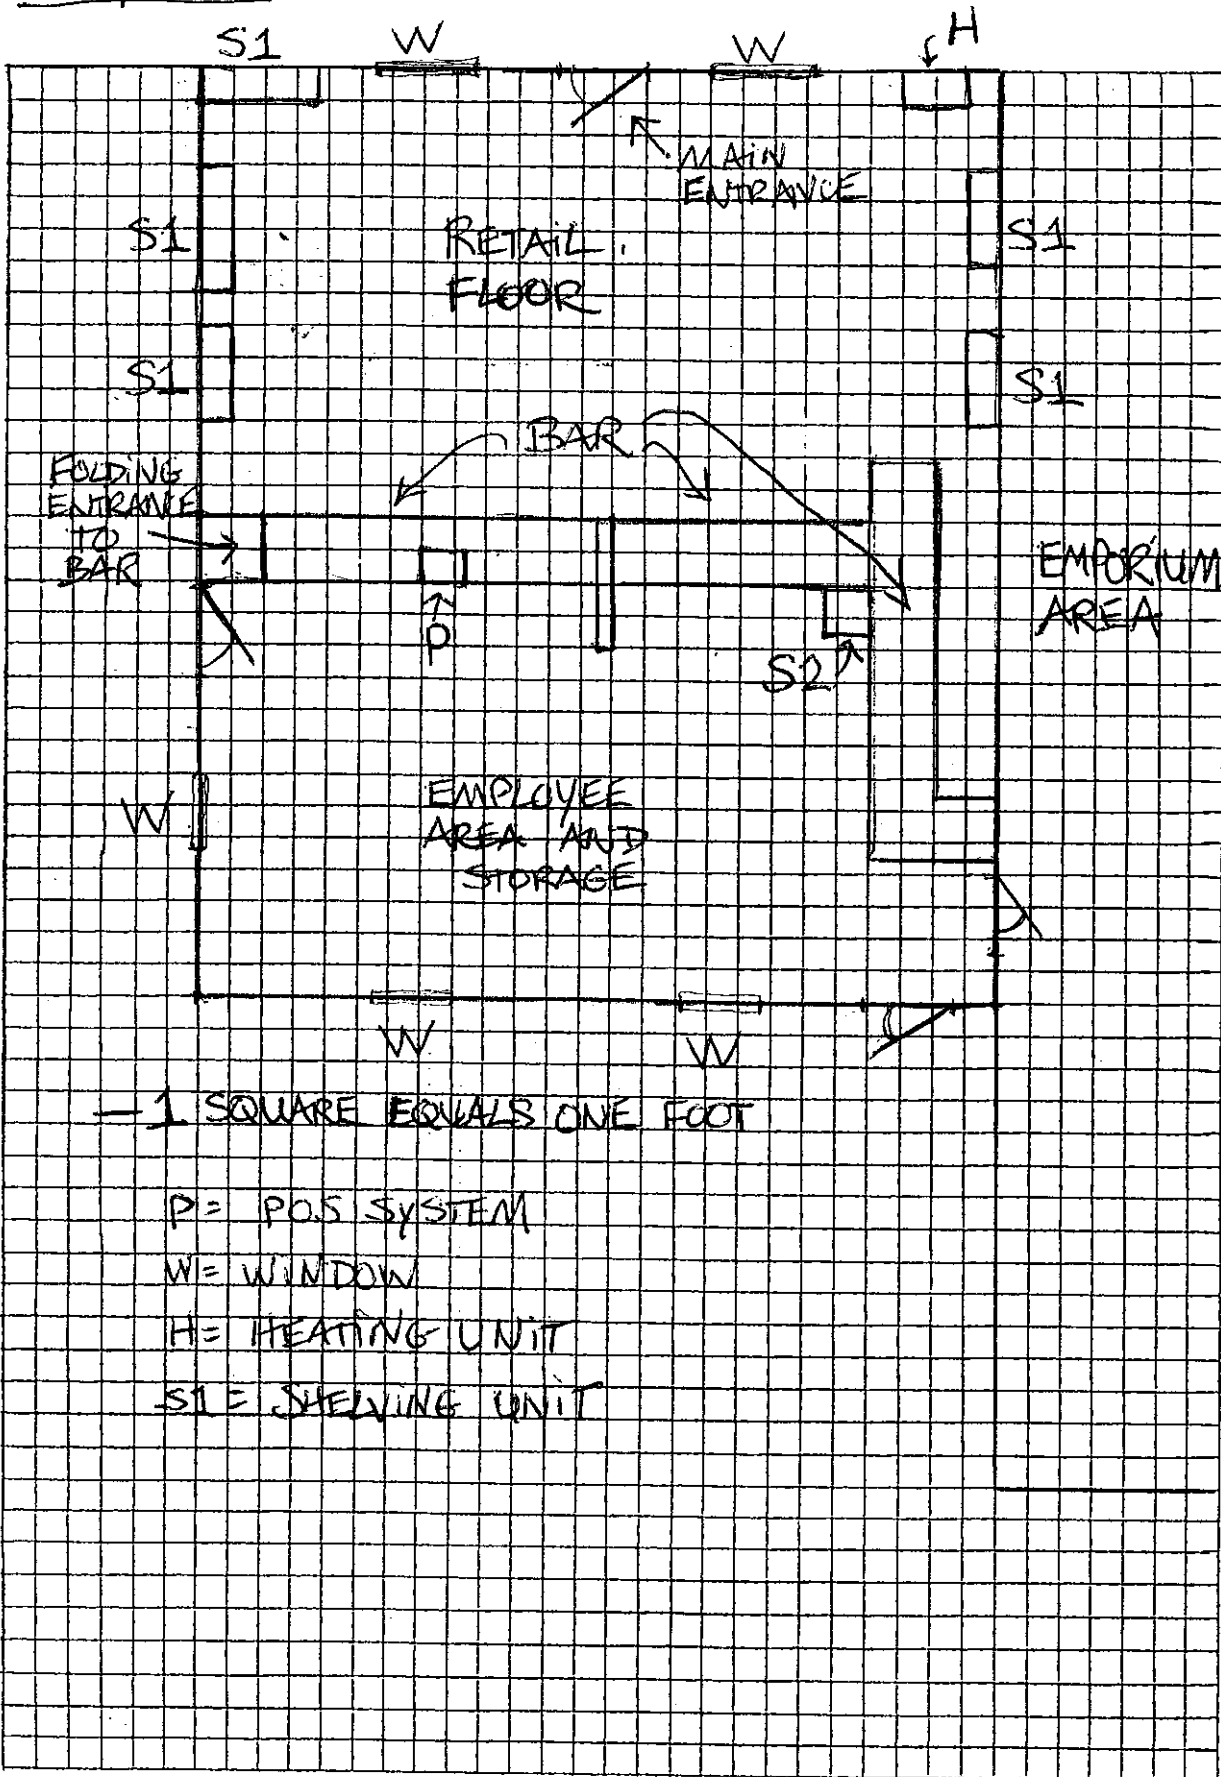 S1
W
W
H
MAIN
ENTRANCE
S1
RETAIL
FLOOR
S1
S1
S1
BAR
FOLDING
ENTRANCE
TO
BAR
EMPORIUM
AREA
P
S2
W
EMPLOYEE
AREA AND
STORAGE
W
W
— 1 SQUARE EQUALS ONE FOOT
P = POS SYSTEM
W = WINDOW
H = HEATING UNIT
S1 = SHELVING UNIT